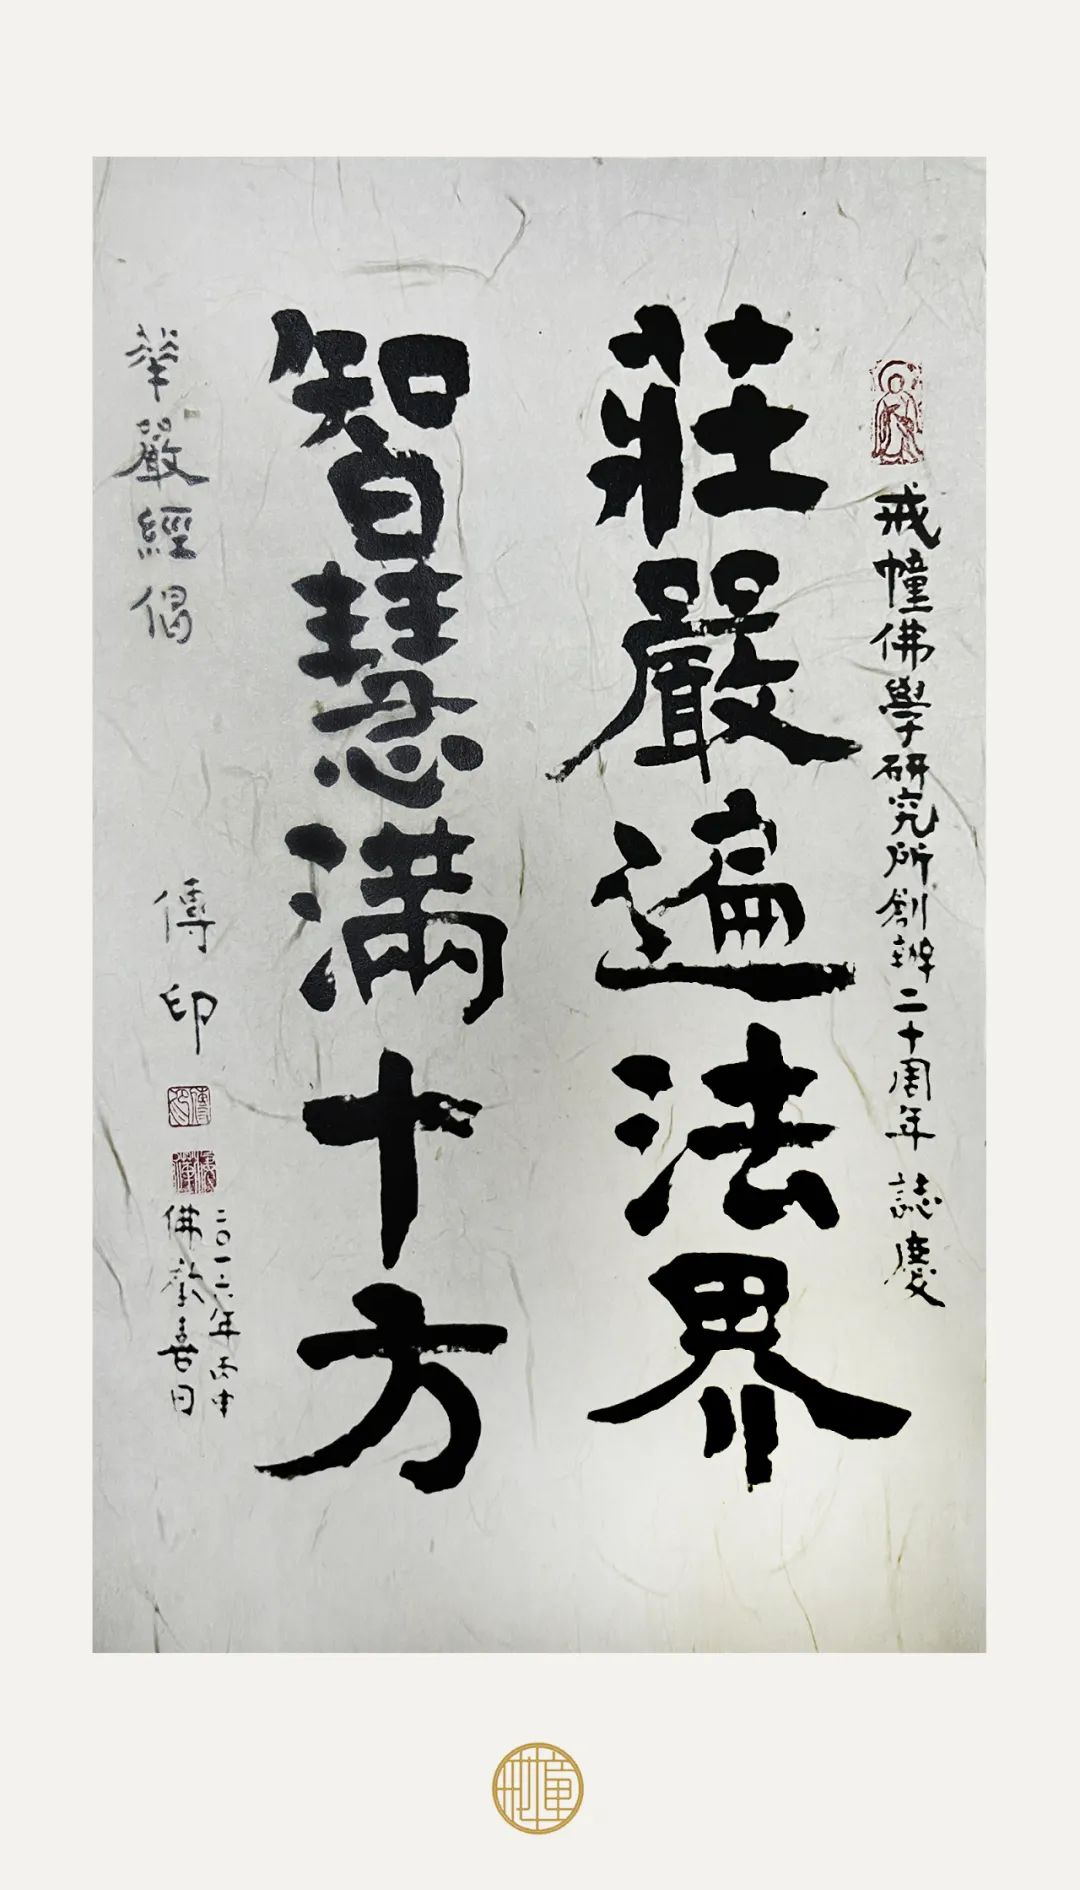 戒幢佛學研究所創辦二十周年 誌慶
莊嚴遍法界
智慧滿十方
華嚴經偈
傳印
二〇一六年丙申
佛歡喜日
傳印
戒幢